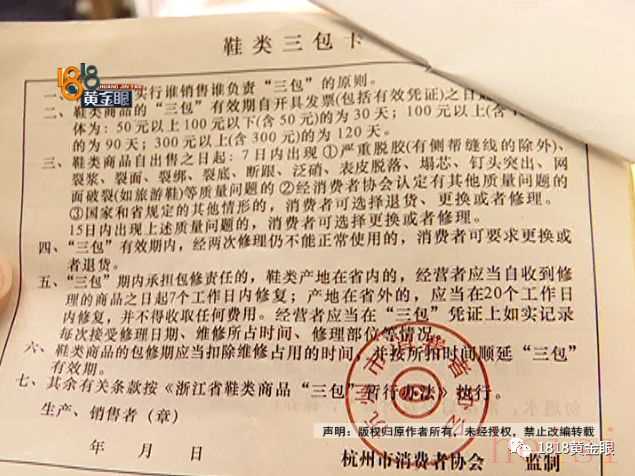 鞋类三包卡
1818
黄金眼
一、实行谁销售谁负责“三包”的原则。
二、鞋类商品的“三包”有效期自开具发票(包括有效凭证)之日
体为：50元以上100元以下(含50元)的为30天；100元以上(含
的为90天；300元以上(含300元)的为120天。
三、鞋类商品自出售之日起：7日内出现①严重脱胶(有侧帮缝线的除外)、
裂浆、裂面、裂绑、裂底、断跟、泛硝、表皮脱落、塌芯、钉头突出、网
面破裂(如旅游鞋)等质量问题的②经消费者协会认定有其他质量问题的
③国家和省规定的其他情形的，消费者可选择退货、更换或者修理。
15日内出现上述质量问题的，消费者可选择更换或者修理。
四、“三包”有效期内，经两次修理仍不能正常使用的，消费者可要求更换或
者退货。
五、“三包”期内承担包修责任的，鞋类产地在省内的，经营者应当自收到修
理的商品之日起7个工作日内修复；产地在省外的，应当在20个工作日
内修复，并不得收取任何费用。经营者应当在“三包”凭证上如实记录
每次接受修理日期、维修所占时间、修理部位等情况。
六、鞋类商品的包修期应当扣除维修占用的时间，并按所扣时间顺延“三包”
有效期。
七、其余有关条款按《浙江省鞋类商品“三包”暂行办法》执行。
生产、销售者（章）
年 月 日
声明：版权归原作者所有，未经授权，禁止改编转载
杭州市消费者协会 监制
1818黄金眼